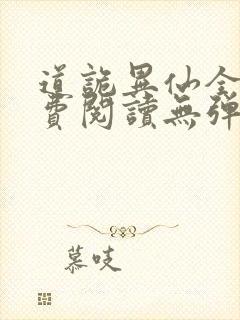 道詭異仙全
費閱讀無彈
慕吱